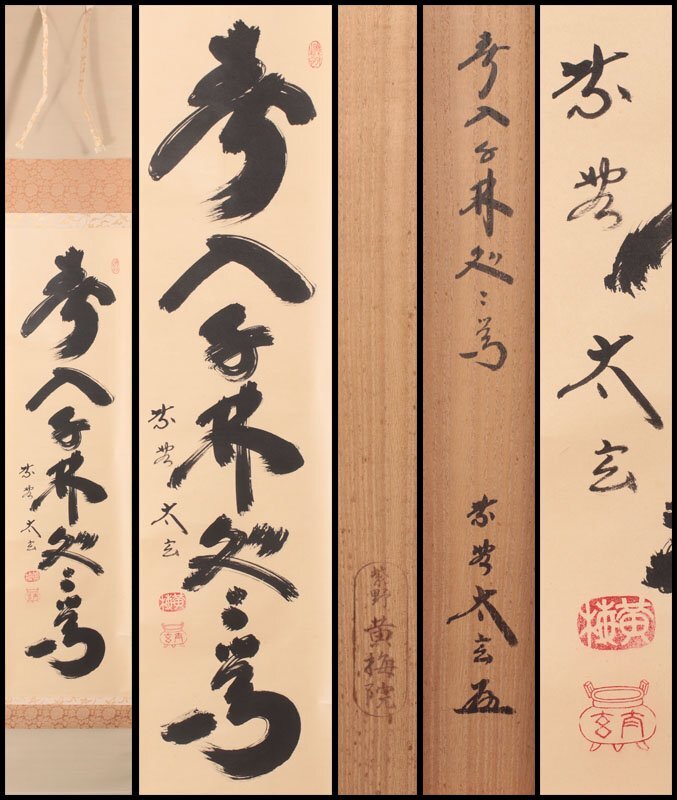 春入千林処々鶯
紫野太玄
春入千林処々鶯
紫野太玄
黄梅
紫野
黄梅院
春入千林処々鶯
紫野太玄
紫野太玄
黄梅